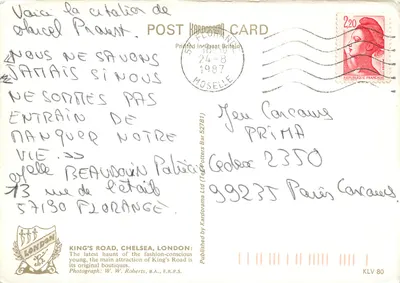 Voici la citation de
Marcel Proust.
« NOUS NE SAVONS
JAMAIS SI NOUS
NE SOMMES PAS
ENTRAIN DE
MANQUER NOTRE
VIE. »
Melle BEAUDOIN Patricia
13 rue de l'étoile
57190 FLORANGE
POST CARD
KARDORAMA
Printed in Great Britain
57 FLORANGE
24-8
1987
MOSELLE
2,20
REPUBLIQUE FRANCAISE
Jeu Concours
PRIMA
Cedex 2350
99235 Paris Concours
Published by Kardorama Ltd (Tel: Potters Bar 52781)
LONDON
KING'S ROAD, CHELSEA, LONDON:
The latest haunt of the fashion-conscious
young, the main attraction of King's Road is
its original boutiques.
Photograph: W. W. Roberts,
KLV 80